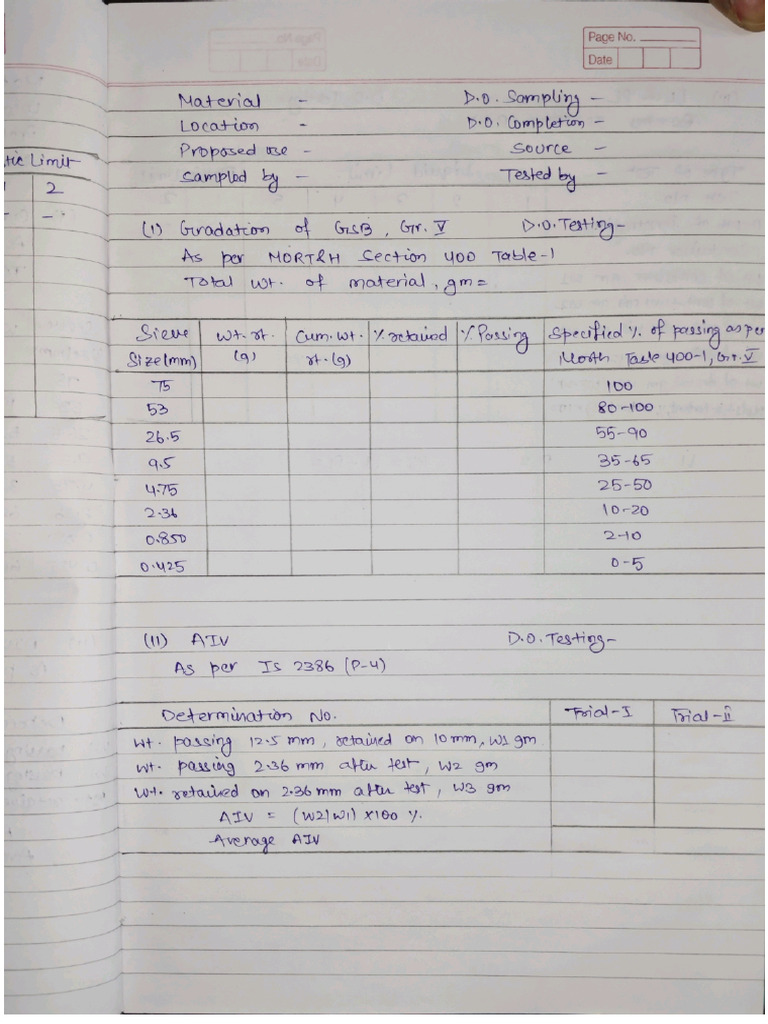 Page No.
Date
Material - D.O. Sampling -
Location - D.O. Completion -
Proposed use - Source -
Sampled by - Tested by -
tic Limit
2
-
(I) Gradation of GSB, Gr. V D.O. Testing -
As per MORT&H Section 400 Table-1
Total wt. of material, gm =
Sieve Wt. rt. Cum. wt. % retained % Passing Specified % of passing as per
Size(mm) (g) rt. (g) Morth Table 400-1, Gr. V
75 100
53 80-100
26.5 55-90
9.5 35-65
4.75 25-50
2.36 10-20
0.850 2-10
0.425 0-5
(II) AIV D.O. Testing -
As per Is 2386 (P-4)
Determination No. Trial-I Trial-II
Wt. passing 12.5 mm, retained on 10 mm, W1 gm
Wt. passing 2.36 mm after test, W2 gm
Wt. retained on 2.36 mm after test, W3 gm
AIV = (W2/W1) ×100 %.
Average AIV